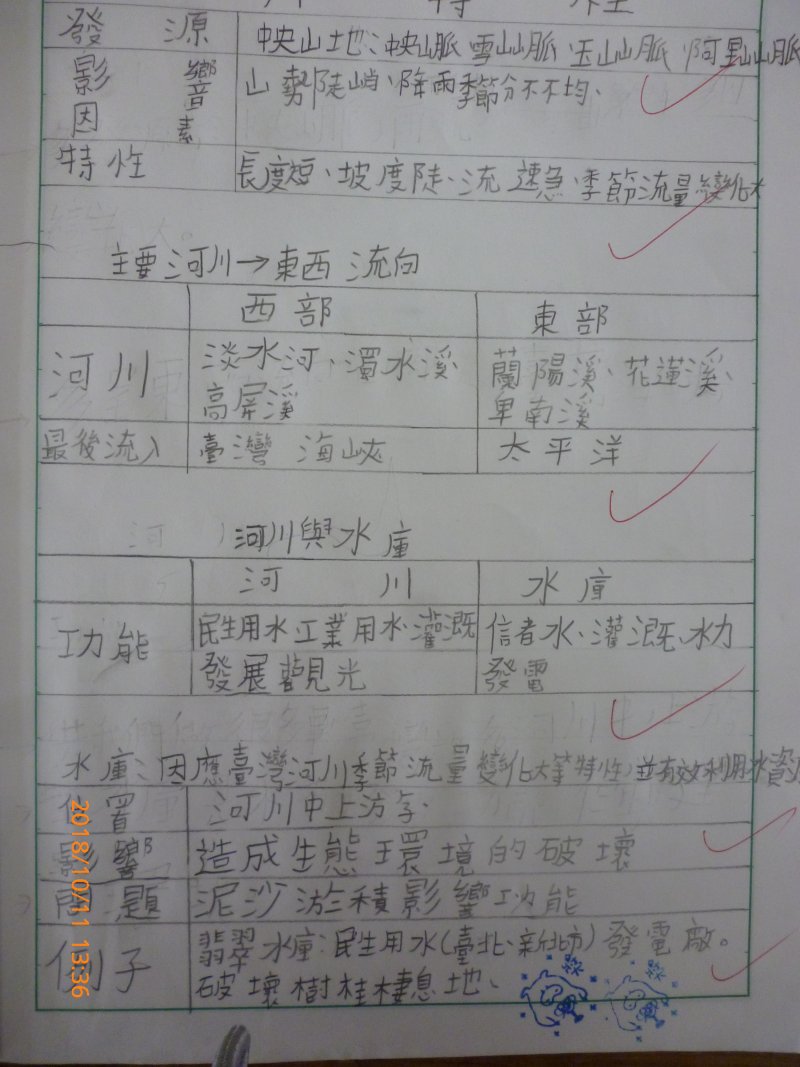 特性
發源 中央山地:中央山脈、雪山山脈、玉山山脈、阿里山山脈
影響因素 山勢陡峭、降雨季節分不不均、
特性 長度短、坡度陡、流速急、季節流量變化大
主要河川→東西流向
西部 東部
河川 淡水河、濁水溪、 蘭陽溪、花蓮溪、
高屏溪 卑南溪
最後流入 臺灣海峽 太平洋
河川與水庫
河川 水庫
功能 民生用水、工業用水、灌溉 儲水、灌溉、水力
發展觀光 發電
水庫:因應臺灣河川季節流量變化大等特性,並有效利用水資
位置 河川中上游
影響 造成生態環境的破壞
問題 泥沙淤積影響功能
例子 翡翠水庫:民生用水(臺北、新北市)發電廠。
破壞樹枝棲息地、
2018/10/11 13:36